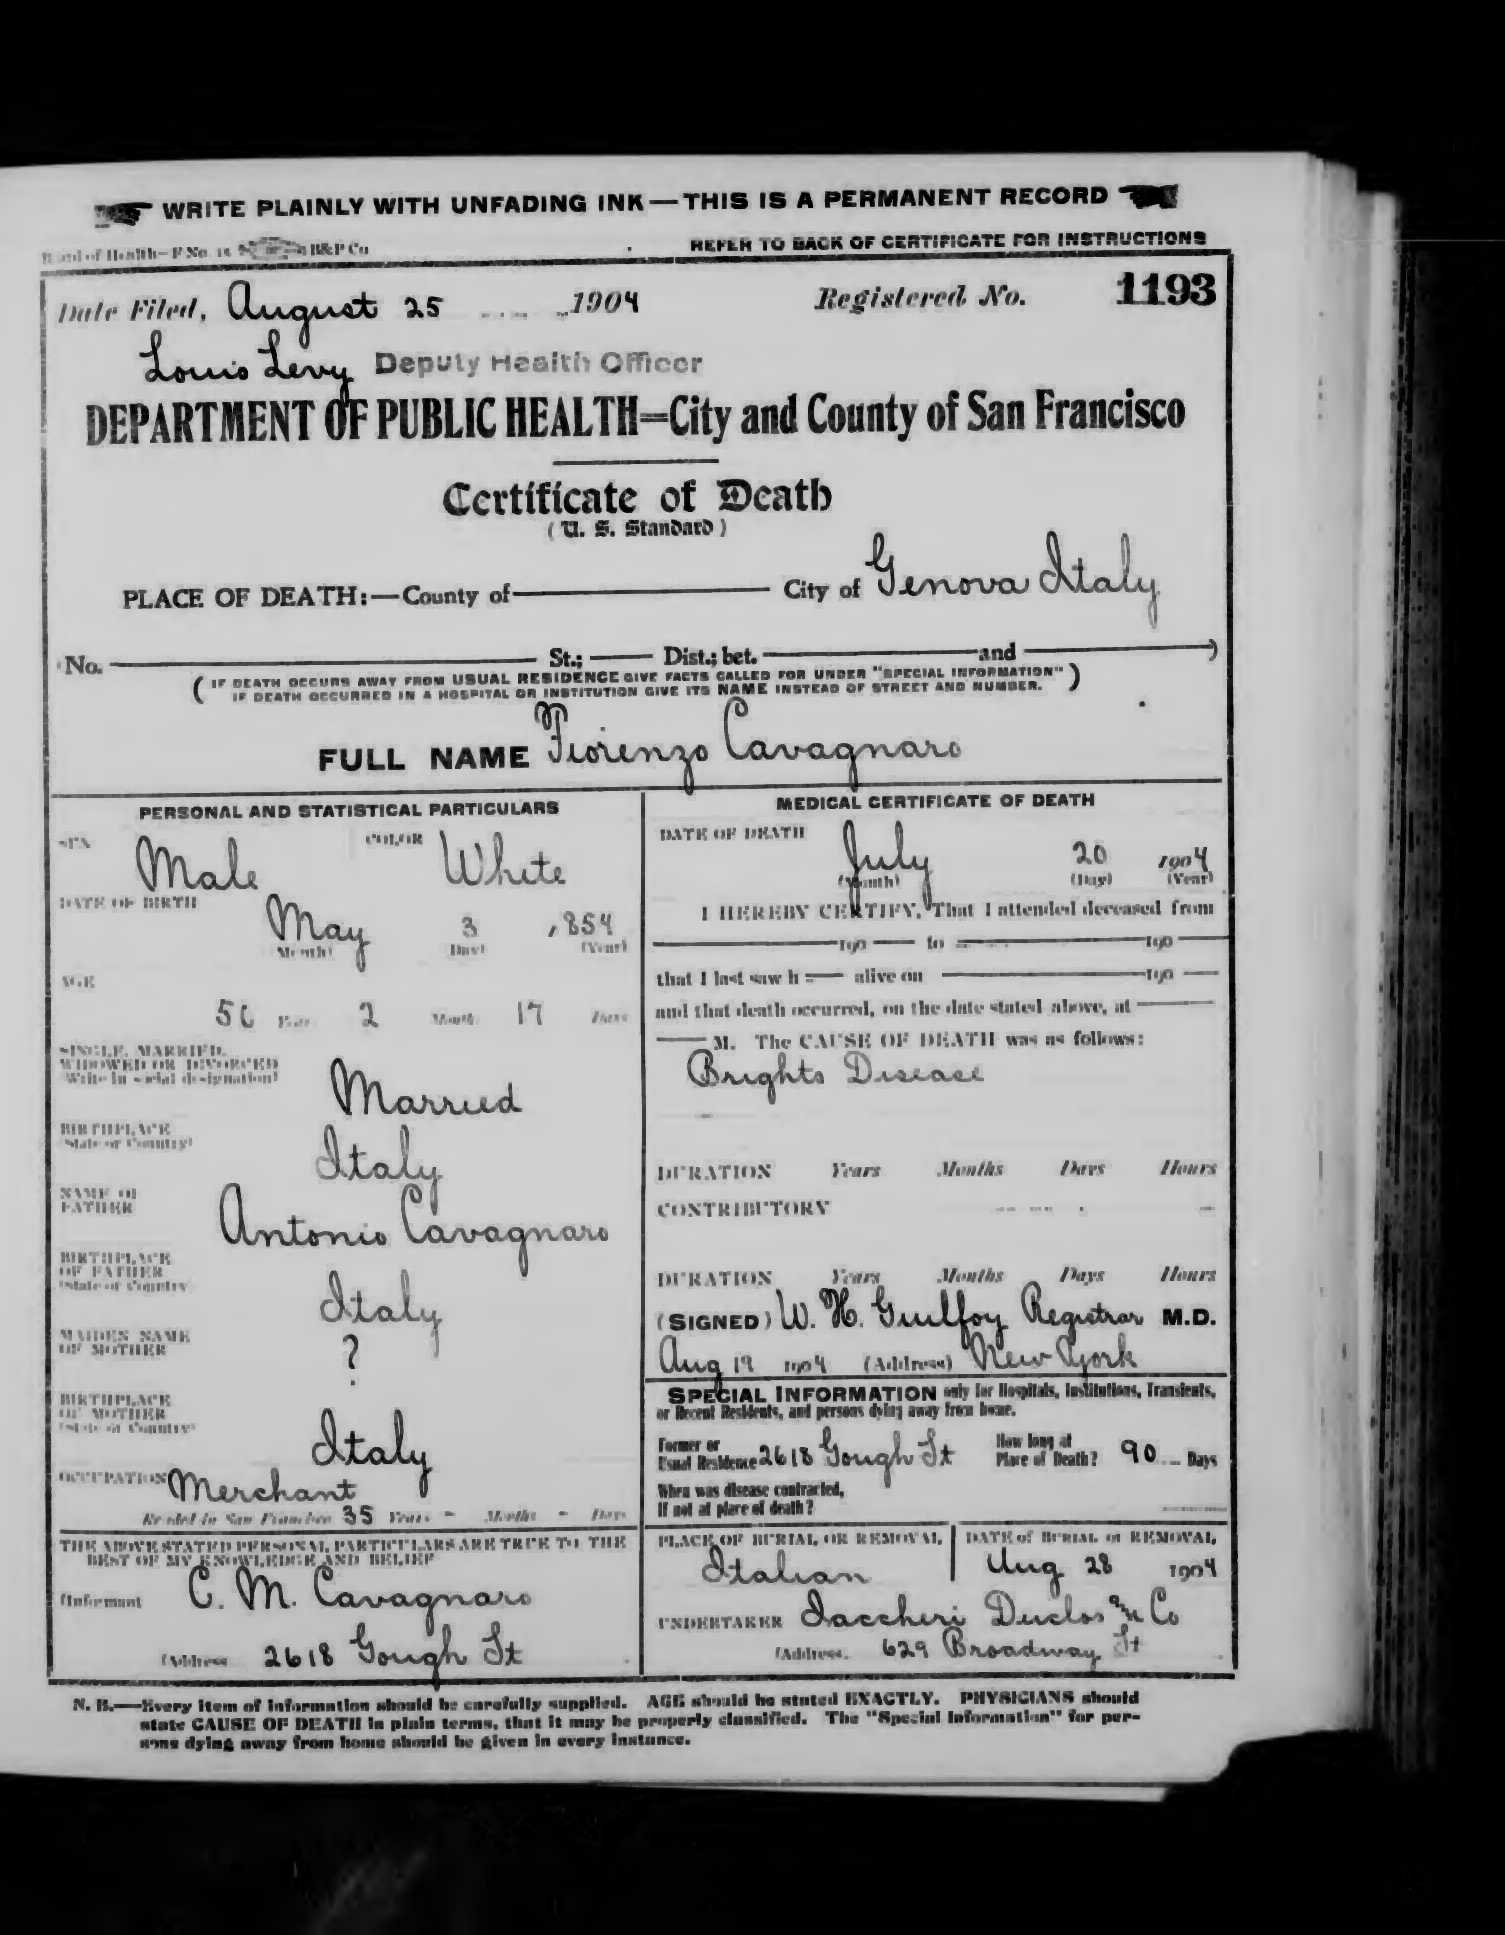 WRITE PLAINLY WITH UNFADING INK—THIS IS A PERMANENT RECORD
Board of Health—F No. 15 B&P Co
REFER TO BACK OF CERTIFICATE FOR INSTRUCTIONS
Date Filed, August 25 1904 Registered No. 1193
Louis Levy Deputy Health Officer
DEPARTMENT OF PUBLIC HEALTH=City and County of San Francisco
Certificate of Death
(U. S. Standard)
PLACE OF DEATH:—County of City of Genova Italy
(No. St.; Dist.; bet. and )
(IF DEATH OCCURS AWAY FROM USUAL RESIDENCE GIVE FACTS CALLED FOR UNDER "SPECIAL INFORMATION"
IF DEATH OCCURRED IN A HOSPITAL OR INSTITUTION GIVE ITS NAME INSTEAD OF STREET AND NUMBER.)
FULL NAME Fiorenzo Cavagnaro
PERSONAL AND STATISTICAL PARTICULARS
SEX Male COLOR White
DATE OF BIRTH
May 3 1854
(Month) (Day) (Year)
AGE
50 Years 2 Months 17 Days
SINGLE, MARRIED,
WIDOWED OR DIVORCED
(Write in social designation)
Married
BIRTHPLACE
(State or Country)
Italy
NAME OF
FATHER
Antonio Cavagnaro
BIRTHPLACE
OF FATHER
(State or Country)
Italy
MAIDEN NAME
OF MOTHER
?
BIRTHPLACE
OF MOTHER
(State or Country)
Italy
OCCUPATION Merchant
Resided in San Francisco 35 Years - Months - Days
THE ABOVE STATED PERSONAL PARTICULARS ARE TRUE TO THE
BEST OF MY KNOWLEDGE AND BELIEF
(Informant C. M. Cavagnaro
(Address 2618 Gough St
MEDICAL CERTIFICATE OF DEATH
DATE OF DEATH
July 20 1904
(Month) (Day) (Year)
I HEREBY CERTIFY, That I attended deceased from
190 to 190
that I last saw h alive on 190
and that death occurred, on the date stated above, at
M. The CAUSE OF DEATH was as follows:
Brights Disease
DURATION Years Months Days Hours
CONTRIBUTORY
DURATION Years Months Days Hours
(SIGNED) W. H. Guilfoy Registrar M.D.
Aug 19 1904 (Address) New York
SPECIAL INFORMATION only for Hospitals, Institutions, Transients,
or Recent Residents, and persons dying away from home.
Former or
Usual Residence 2618 Gough St
How long at
Place of Death? 90 Days
When was disease contracted,
If not at place of death?
PLACE OF BURIAL OR REMOVAL
Italian
DATE of BURIAL or REMOVAL
Aug 28 1904
UNDERTAKER Iaccheri Duclos & Co
(Address. 629 Broadway St
N. B.—Every item of information should be carefully supplied. AGE should be stated EXACTLY. PHYSICIANS should
state CAUSE OF DEATH in plain terms, that it may be properly classified. The "Special Information" for per-
sons dying away from home should be given in every instance.